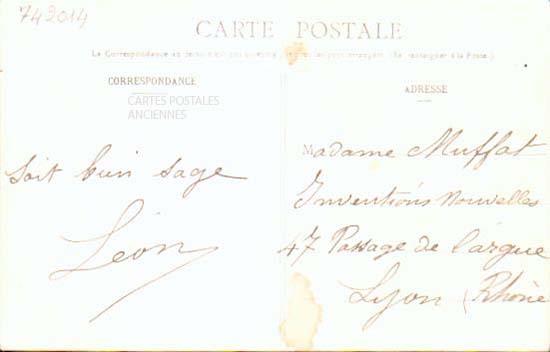 742014
CARTE POSTALE
La Correspondance au recto n'est pas acceptée par tous les pays étrangers. (Se renseigner à la Poste.)
CORRESPONDANCE
CARTES POSTALES
ANCIENNES
soit bien sage
Léon
ADRESSE
Madame Muffat
Inventions Nouvelles
47 Passage de l'argue
Lyon (Rhône